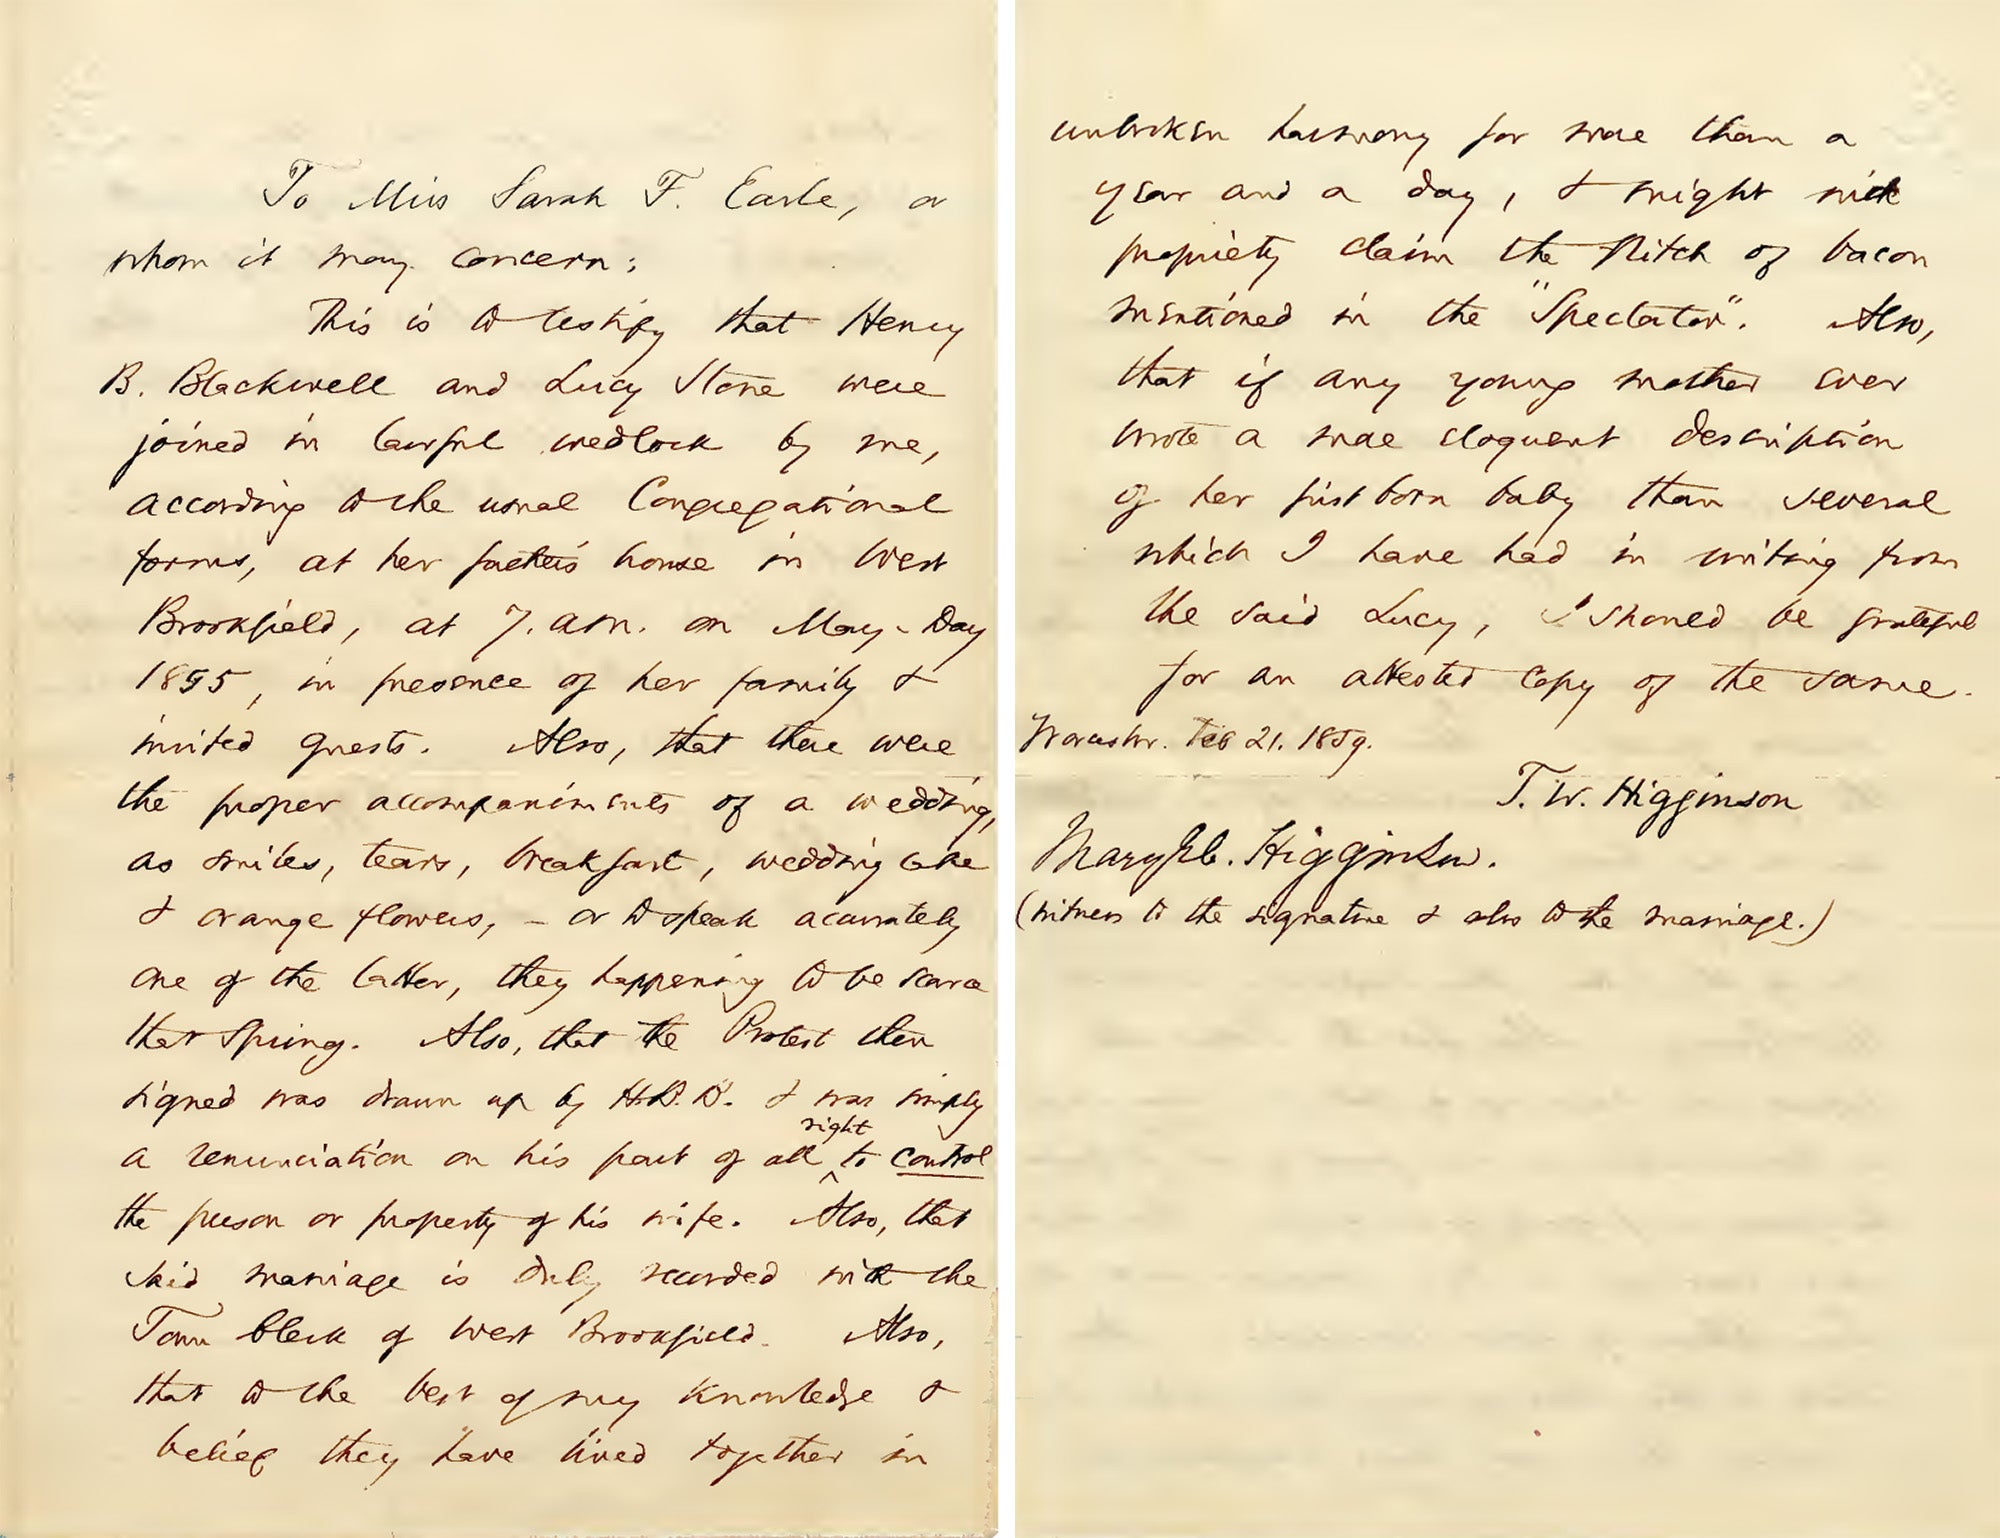 To Miss Sarah F. Earle, or
whom it may concern:
This is to testify that Henry
B. Blackwell and Lucy Stone were
joined in lawful wedlock by me,
according to the usual Congregational
forms, at her father's house in West
Brookfield, at 7. a.m. on May-Day
1855, in presence of her family &
invited guests. Also, that there were
the proper accompaniments of a wedding,
as smiles, tears, breakfast, wedding cake
& orange flowers, – or to speak accurately
one of the latter, they happening to be scarce
that Spring. Also, that the Protest then
signed was drawn up by H.B.B. & was simply
right
a renunciation on his part of all ‸ to control
the person or property of his wife. Also, that
said marriage is duly recorded with the
Town Clerk of West Brookfield. Also,
that to the best of my knowledge &
belief they have lived together in
unbroken harmony for more than a
year and a day, & might with
propriety claim the flitch of bacon
mentioned in the "Spectator". Also,
that if any young mother ever
wrote a more eloquent description
of her first born baby than several
which I have had in writing from
the said Lucy, I should be grateful
for an attested copy of the same.
Worcester. Feb 21. 1859.
T. W. Higginson
Mary E. C. Higginson.
(witness to the signature & also to the marriage.)